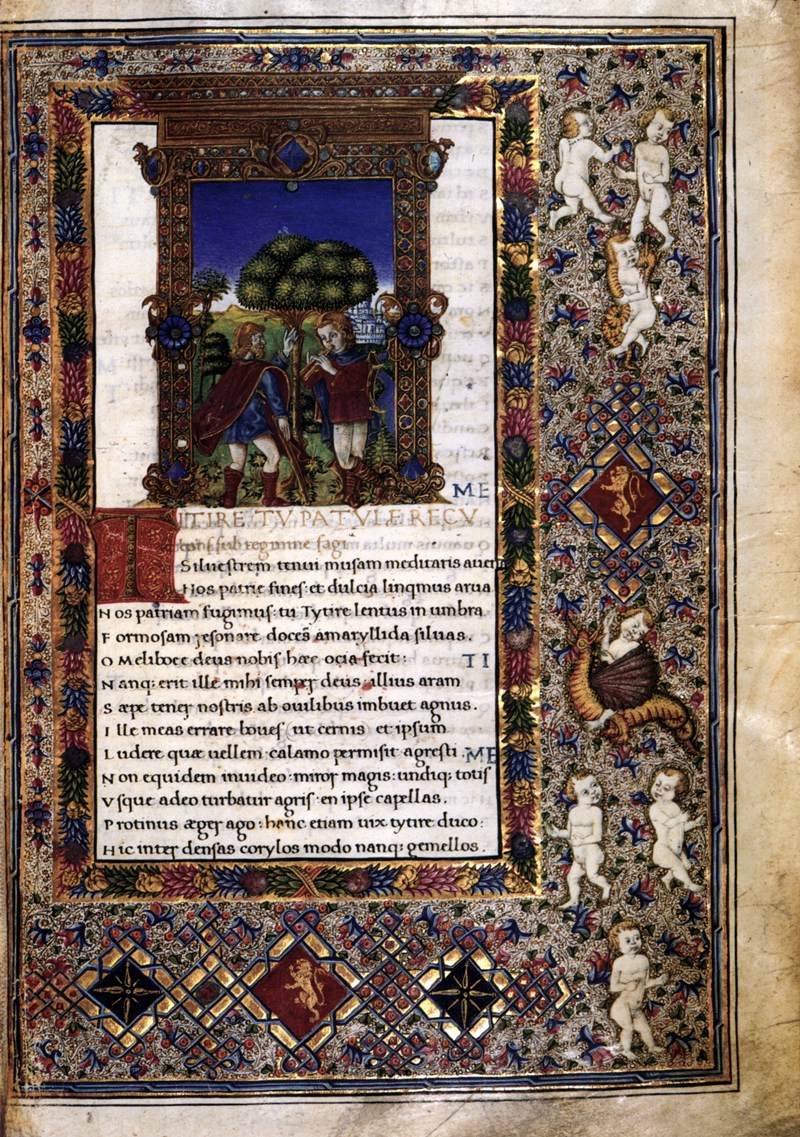 ME
TITIRE, TV, PATVLE RECV
bans sub tegmine fagi
Siluestrem tenui musam meditaris auena
Nos patrie fines: et dulcia linqmus arua
Nos patriam fugimus: tu Tytire lentus in umbra
Formosam resonare doces amaryllida siluas.
O Meliboee deus nobis haec ocia fecit: TI
Nanq: erit ille mihi semper deus: illius aram
Saepe tener nostris ab ouilibus imbuet agnus.
Ille meas errare boues ut cernis et ipsum
Ludere quae uellem calamo permisit agresti. ME
Non equidem inuideo: miror magis: undiq: totis
Vsque adeo turbatur agris: en ipse capellas.
Protinus aeger ago: hanc etiam uix tytire duco:
Hic inter densas corylos modo nanq: gemellos.